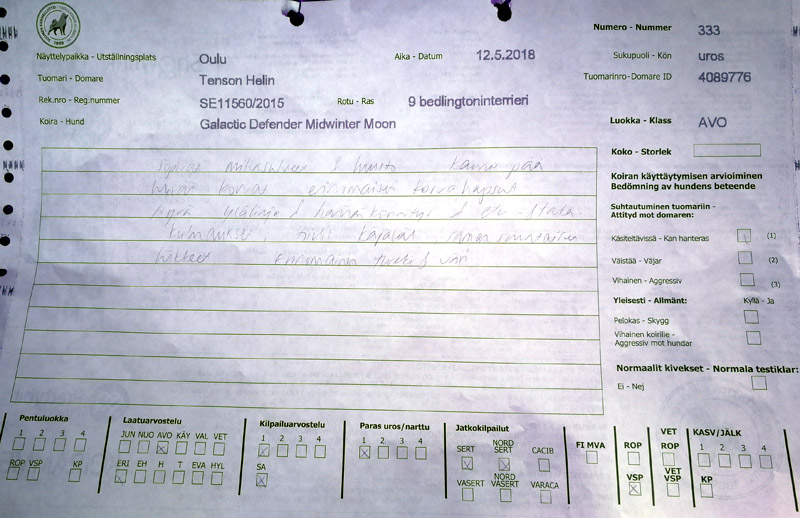 Näyttelypaikka - Utställningsplats Oulu Aika - Datum 12.5.2018
Tuomari - Domare Tenson Helin
Rek.nro - Reg.nummer SE11560/2015 Rotu - Ras 9 bedlingtoninterrieri
Koira - Hund Galactic Defender Midwinter Moon
Numero - Nummer 333
Sukupuoli - Kön uros
Tuomarinro-Domare ID 4089776
Luokka - Klass AVO
Koko - Storlek
mittasuhteet & luusto kaunis pää
hyvät korvat erinomaiset korvahapsut
hyvä ylälinja & hännänkiinnitys & etu - &taka
kulmaukset
liikkeet Erinomainen turkki & väri
Koiran käyttäytymisen arvioiminen
Bedömning av hundens beteende
Suhtautuminen tuomariin -
Attityd mot domaren:
Käsiteltävissä - Kan hanteras (1)
Väistää - Väjar (2)
Vihainen - Aggressiv (3)
Yleisesti - Allmänt: Kyllä - Ja
Pelokas - Skygg
Vihainen koirille -
Aggressiv mot hundar
Normaalit kivekset - Normala testiklar:
Ei - Nej
Pentuluokka
1 2 3 4
ROP VSP KP
Laatuarvostelu
JUN NUO AVO KÄY VAL VET
ERI EH H T EVA HYL
Kilpailuarvostelu
1 2 3 4
SA
Paras uros/narttu
1 2 3 4
Jatkokilpailut
SERT NORD SERT CACIB
VASERT NORD VASERT VARACA
FI MVA
ROP
VSP
VET ROP
VET VSP
KASV/JÄLK
1 2 3 4
KP